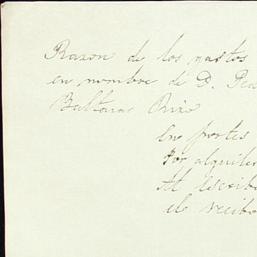 Razon de los gastos
en nombre de D.
Baltasar
En portes
Por alquiler
Al escriba
el recibo